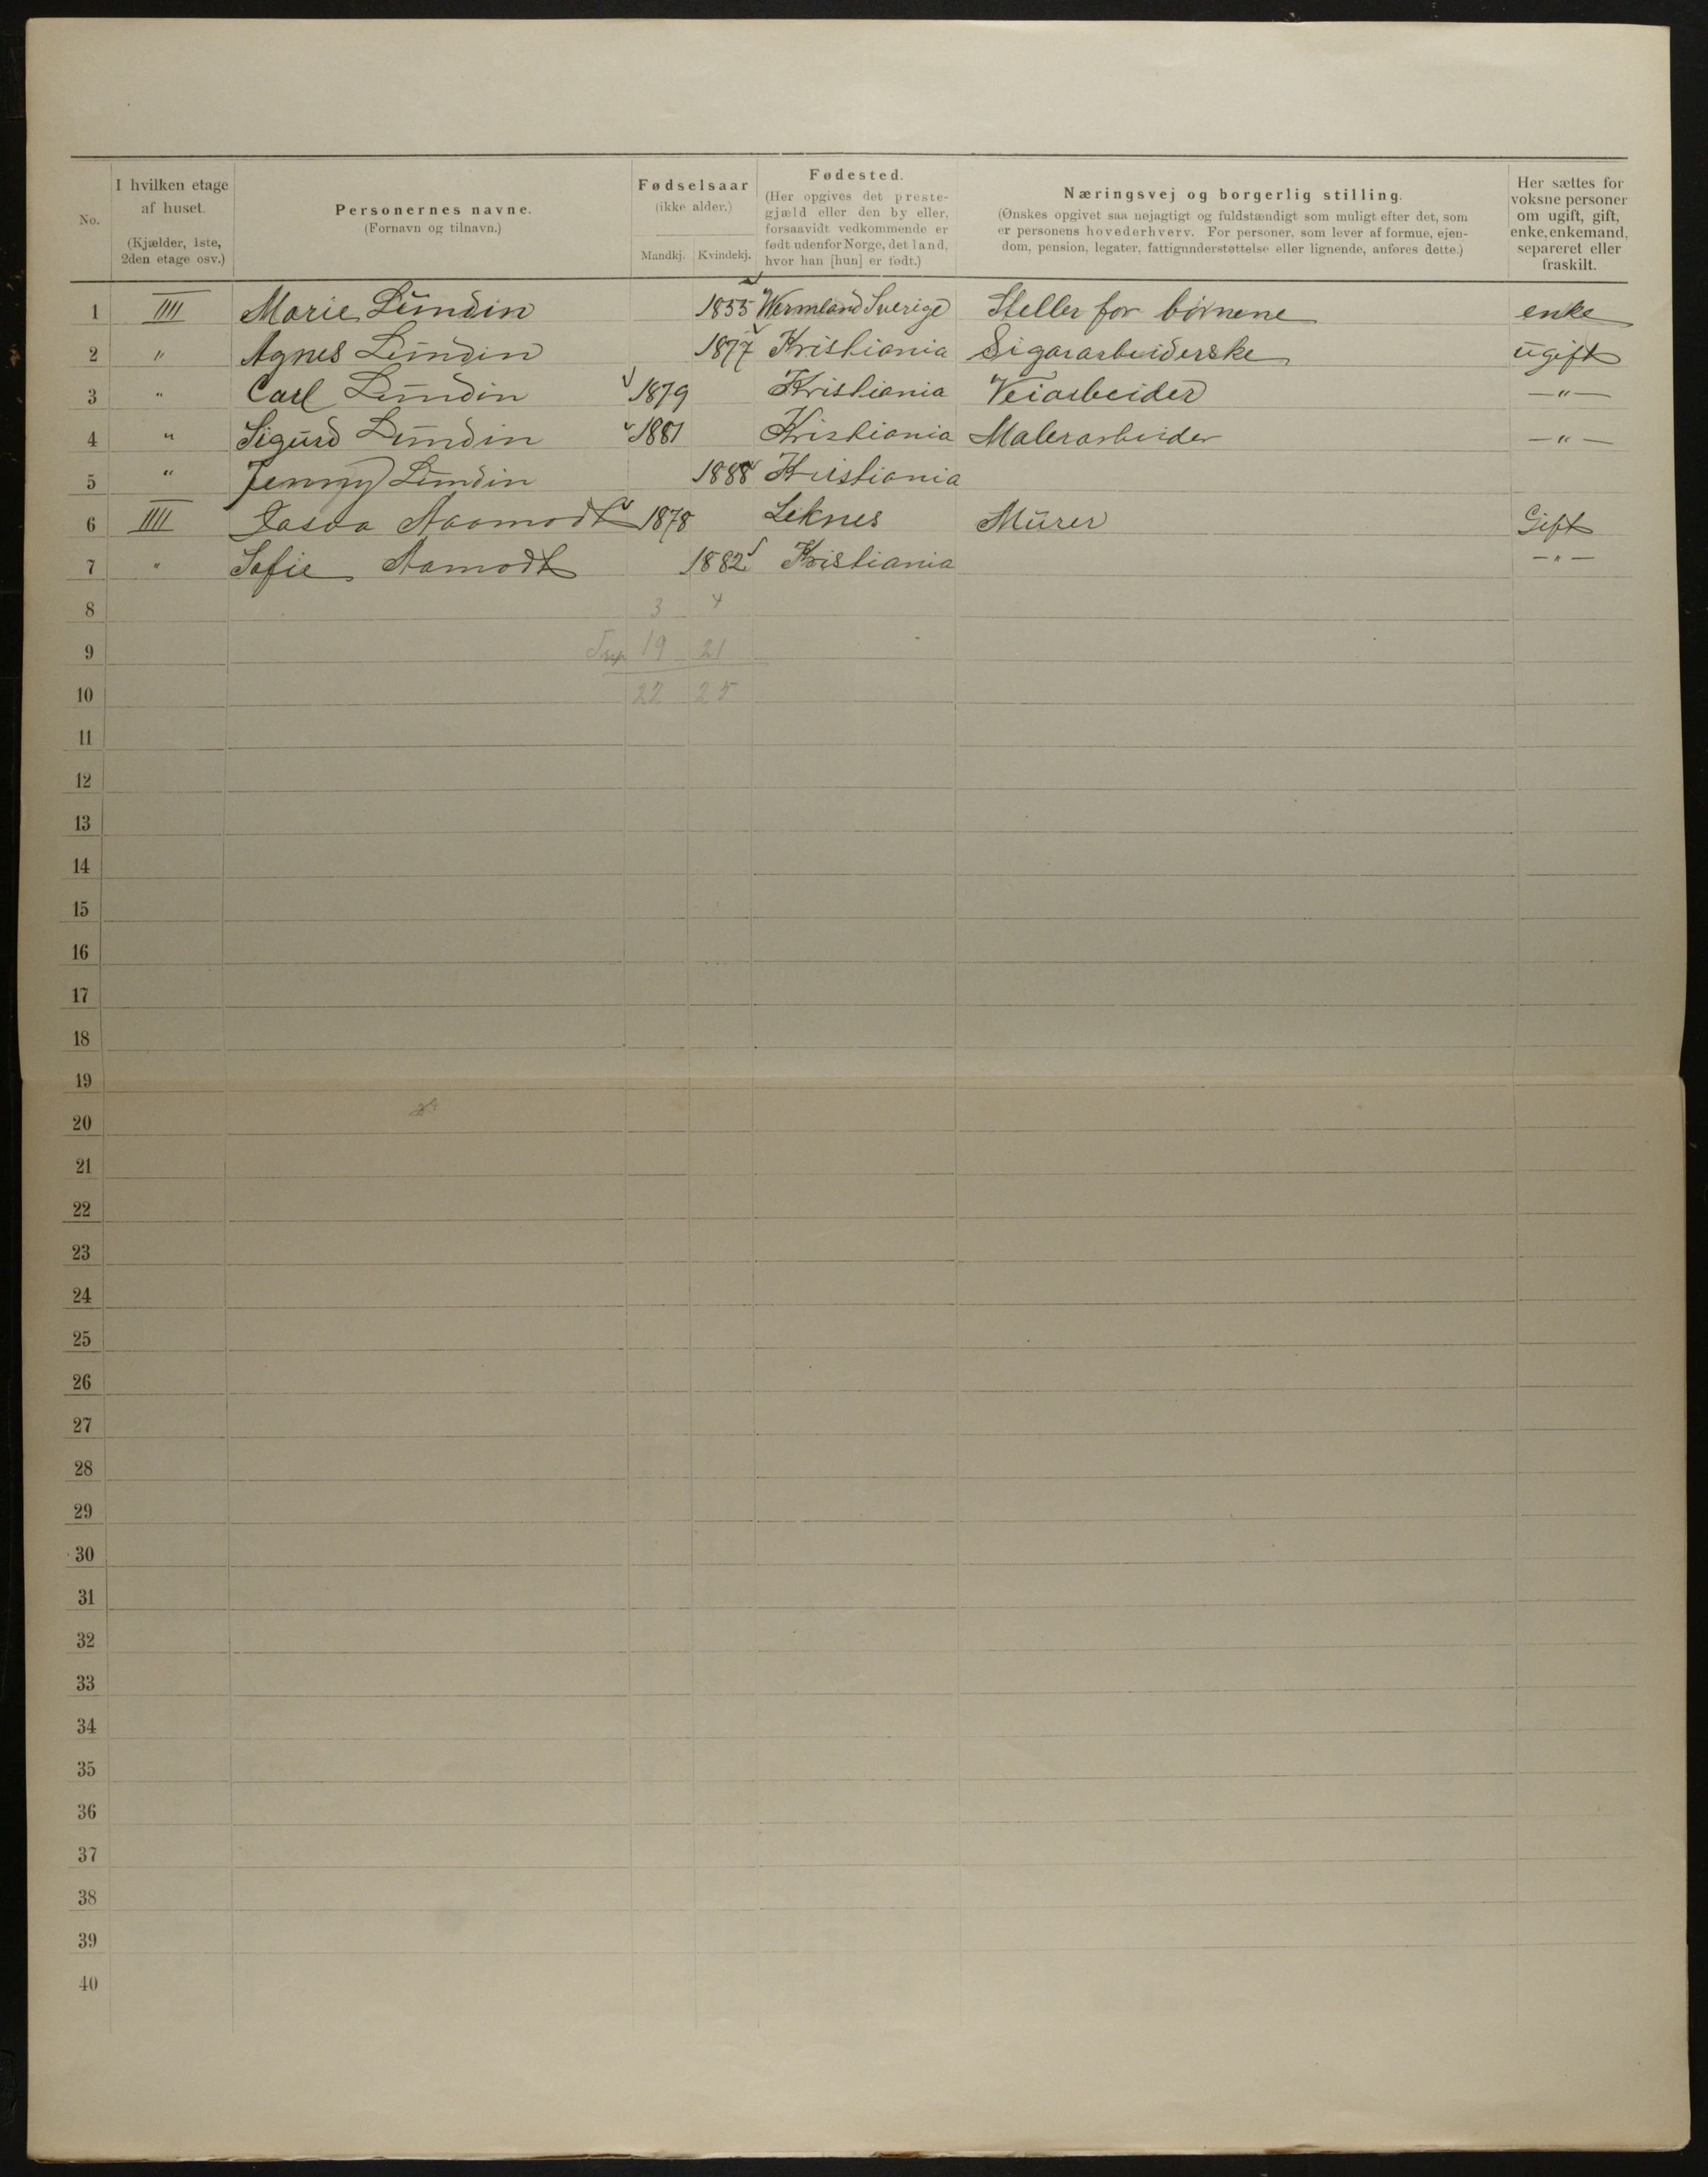 No.
I hvilken etage af huset. (Kjælder, 1ste, 2den etage osv.)
Personernes navne. (Fornavn og tilnavn.)
Fødselsaar (ikke alder.) Mandkj. Kvindekj.
Fødested. (Her opgives det prestegjæld eller den by eller, forsaavidt vedkommende er født udenfor Norge, det land, hvor han [hun] er født.)
Næringsvej og borgerlig stilling. (Ønskes opgivet saa nøjagtigt og fuldstændigt som muligt efter det, som er personens hovederhverv. For personer, som lever af formue, ejendom, pension, legater, fattigunderstøttelse eller lignende, anføres dette.)
Her sættes for voksne personer om ugift, gift, enke, enkemand, separeret eller fraskilt.
1 IIII Marie Lundin 1855 Wermeland Sverige Steller for børnene enke
2 " Agnes Lundin 1877 Kristiania Sigararbeiderske ugift
3 " Carl Lundin 1879 Kristiania Veiarbeider — " —
4 " Sigurd Lundin 1881 Kristiania Malerarbeider — " —
5 " Jenny Lundin 1888 Kristiania
6 IIII Aaomodt 1878 Leknes Murer Gift
7 " Sofie Aamodt 1882 Kristiania — " —
8 3 4
9 19 21
10 22 25
11
12
13
14
15
16
17
18
19
20
21
22
23
24
25
26
27
28
29
30
31
32
33
34
35
36
37
38
39
40